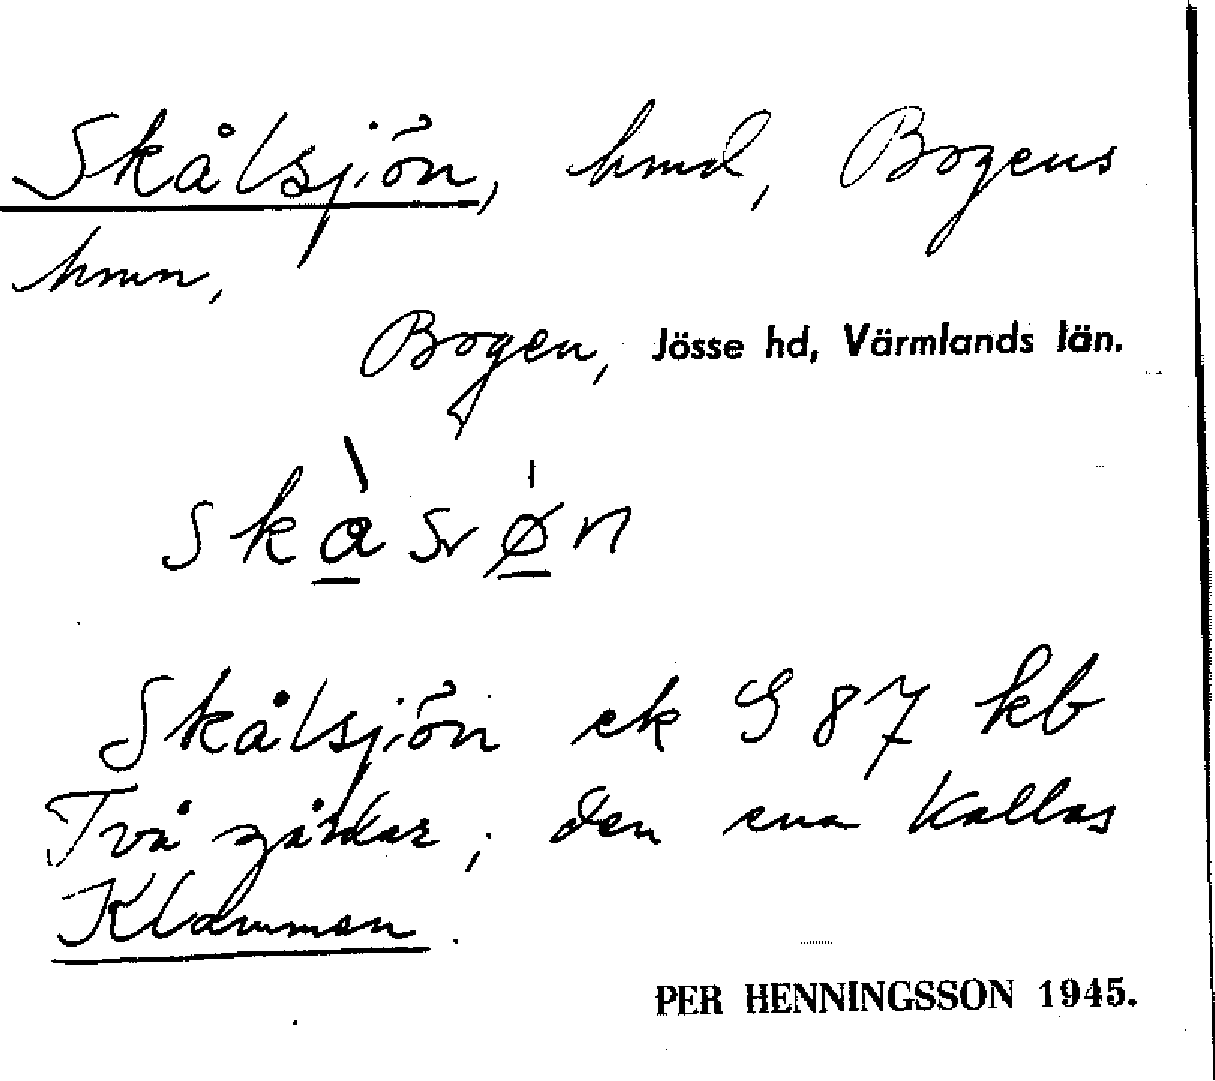 Skålsjön, hmd, Bogens
hmn,
Bogen, Jösse hd, Värmlands län.
skàsrøn
Skålsjön ek S 87 kb
Två gårdar; den ena kallas
Klammen.
PER HENNINGSSON 1945.